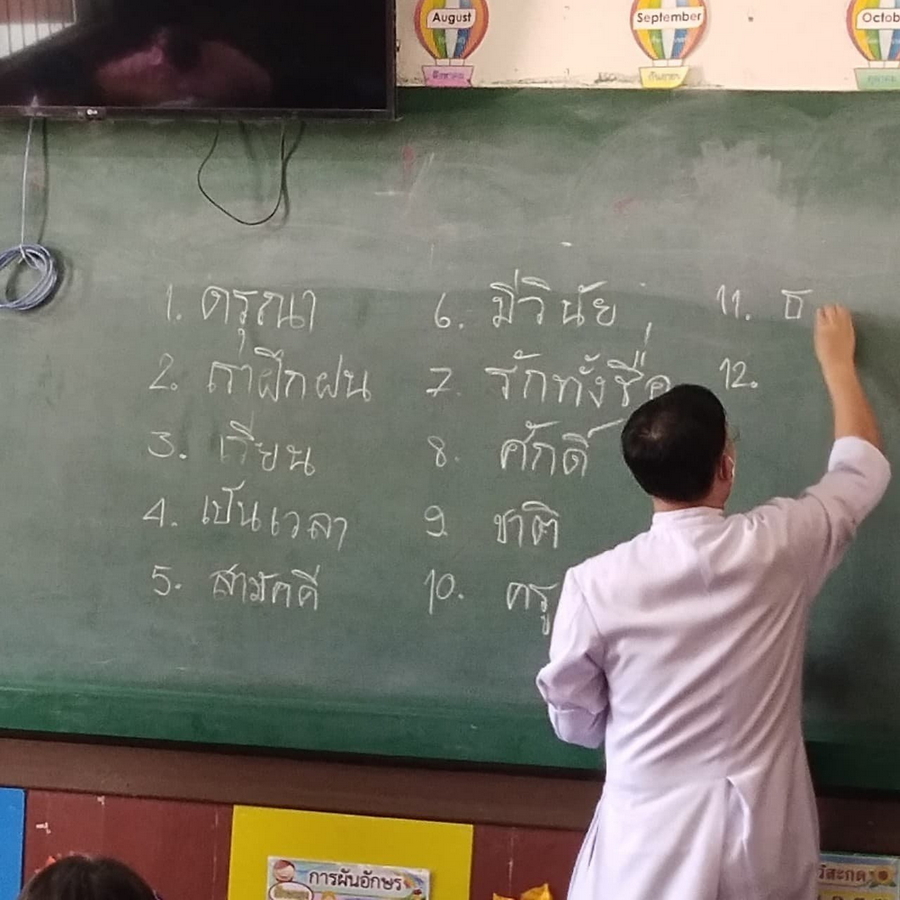 August
September
Octob
สิงหาคม
กันยายน
ตุลาคม
LG
1. ดรุณา
2. ถ้าฝึกฝน
3. เรียน
4. เป็นเวลา
5. สามัคคี
6. มีวินัย
7. รักทั้งชื่อ
8. ศักดิ์
9 ชาติ
10. ครู
11. ธ
12.
การผันอักษร